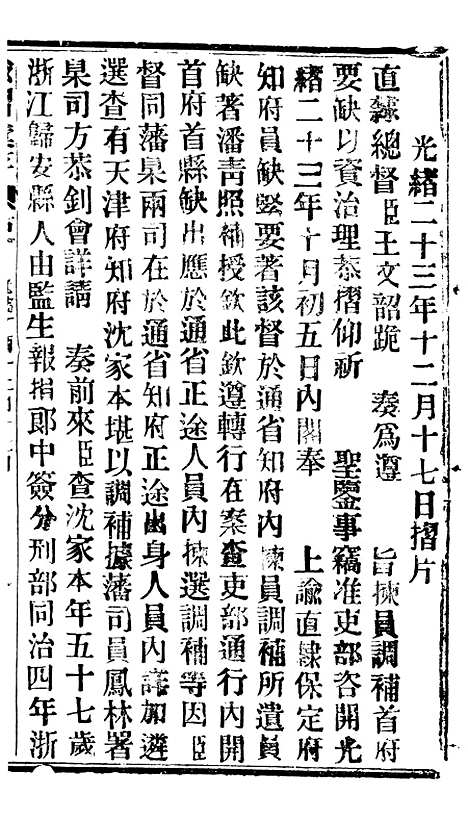 光緒二十三年十二月十七日摺片
直隸總督臣王文韶跪　奏為遵　旨揀員調補首府
要缺以資治理恭摺仰祈　聖鑒事竊准吏部咨開光
緒二十三年十月初五日內閣奉　上諭直隸保定府
知府員缺緊要著該督於通省知府內揀員調補所遺員
缺著潘靑照補授欽此欽遵轉行在案查吏部通行內開
首府首縣缺出應於通省正途人員內揀選調補等因臣
督同藩臬兩司在於通省知府正途出身人員內詳加遴
選查有天津府知府沈家本堪以調補據藩司員鳳林署
臬司方恭釗會詳請　奏前來臣查沈家本年五十七歲
浙江歸安縣人由監生報捐郎中簽分刑部同治四年浙